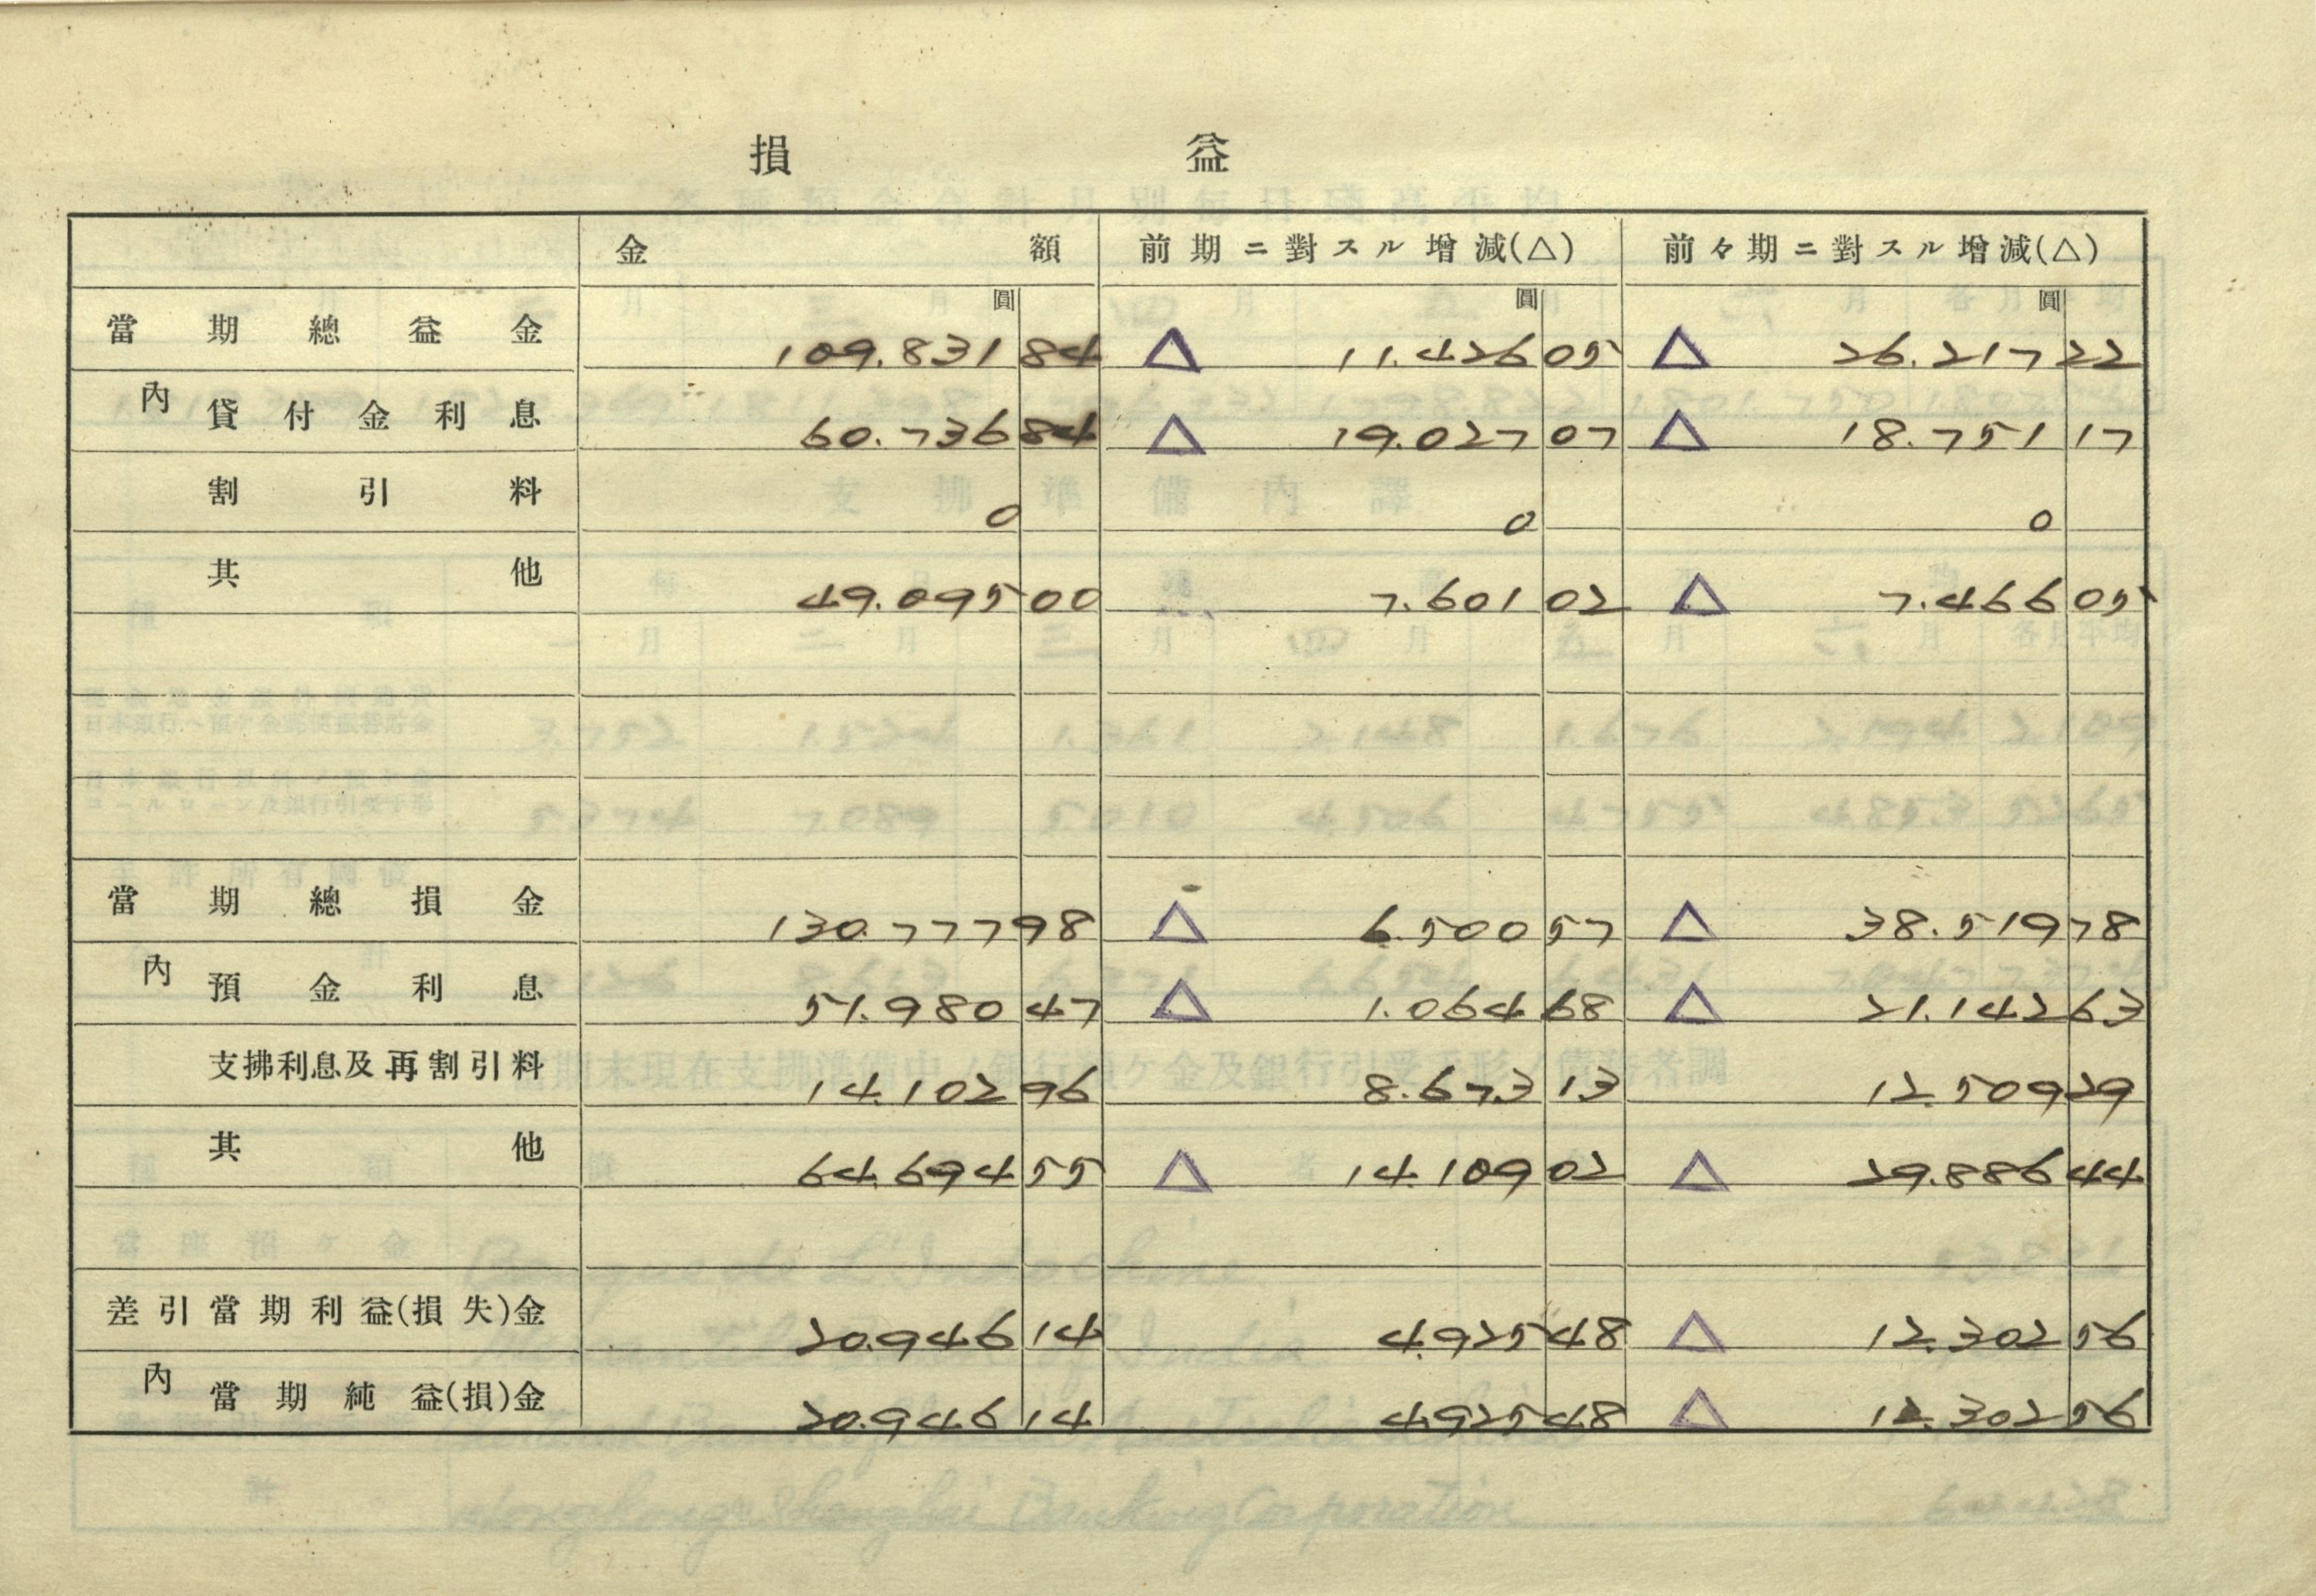 損益
金額 前期ニ對スル增減(△) 前々期ニ對スル增減(△)
圓 圓 圓
當期總益金 109.831 84 △ 11.426 05 △ 26.217 22
內 貸付金利息 60.736 84 △ 19.027 07 △ 18.751 17
割引料 0 0 0
其他 49.095 00 7.601 02 △ 7.466 05
當期總損金 130.777 98 △ 6.500 57 △ 38.519 78
內 預金利息 51.980 47 △ 1.064 68 △ 21.142 63
支拂利息及再割引料 14.102 96 8.673 13 12.509 29
其他 64.694 55 △ 14.109 02 △ 29.886 44
差引當期利益(損失)金 20.946 14 4.925 48 △ 12.302 56
內 當期純益(損)金 20.946 14 4.925 48 △ 12.302 56